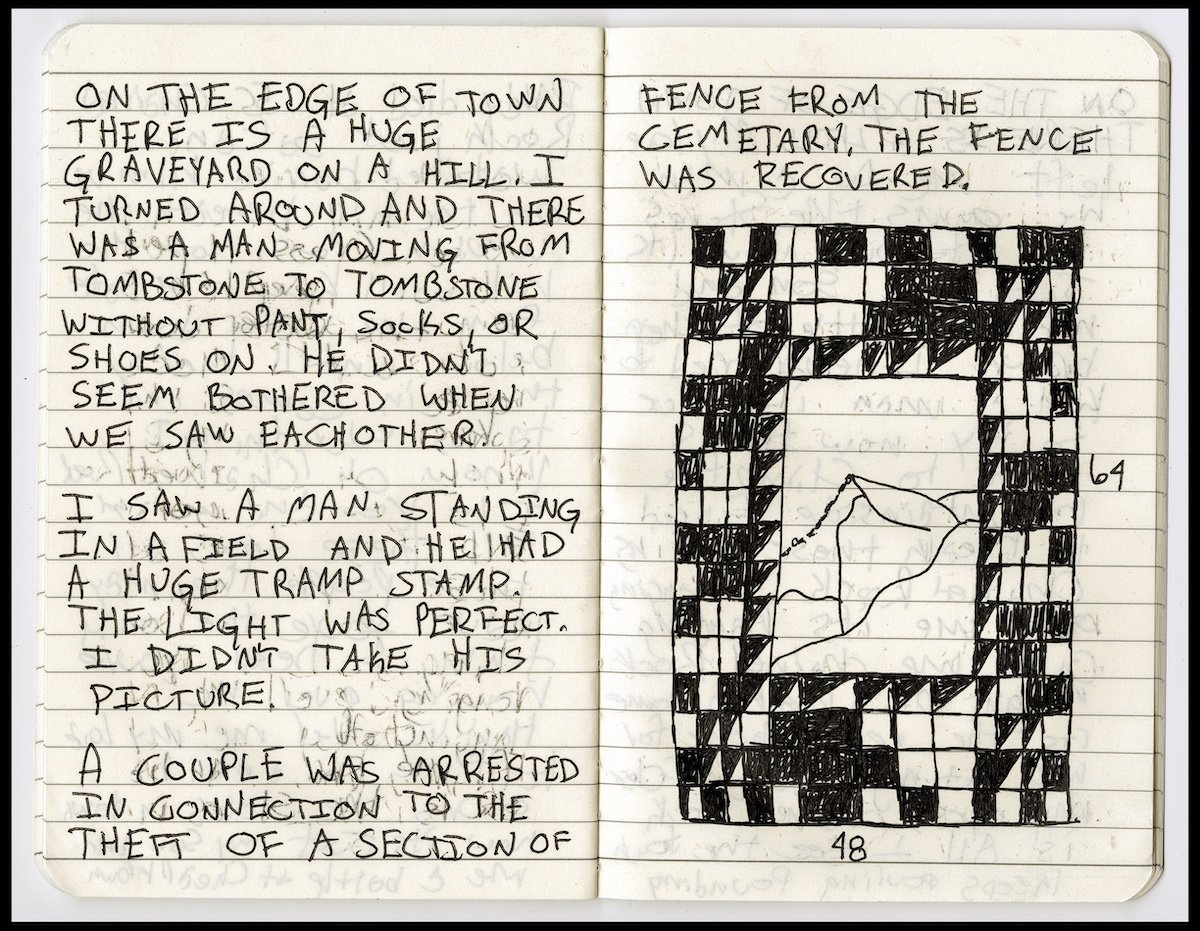 ON THE EDGE OF TOWN
THERE IS A HUGE
GRAVEYARD ON A HILL. I
TURNED AROUND AND THERE
WAS A MAN MOVING FROM
TOMBSTONE TO TOMBSTONE
WITHOUT PANT, SOCKS, OR
SHOES ON. HE DIDN'T
SEEM BOTHERED WHEN
WE SAW EACHOTHER.
I SAW A MAN STANDING
IN A FIELD AND HE HAD
A HUGE TRAMP STAMP.
THE LIGHT WAS PERFECT.
I DIDN'T TAKE HIS
PICTURE.
A COUPLE WAS ARRESTED
IN CONNECTION TO THE
THEFT OF A SECTION OF
FENCE FROM THE
CEMETARY, THE FENCE
WAS RECOVERED.
64
48